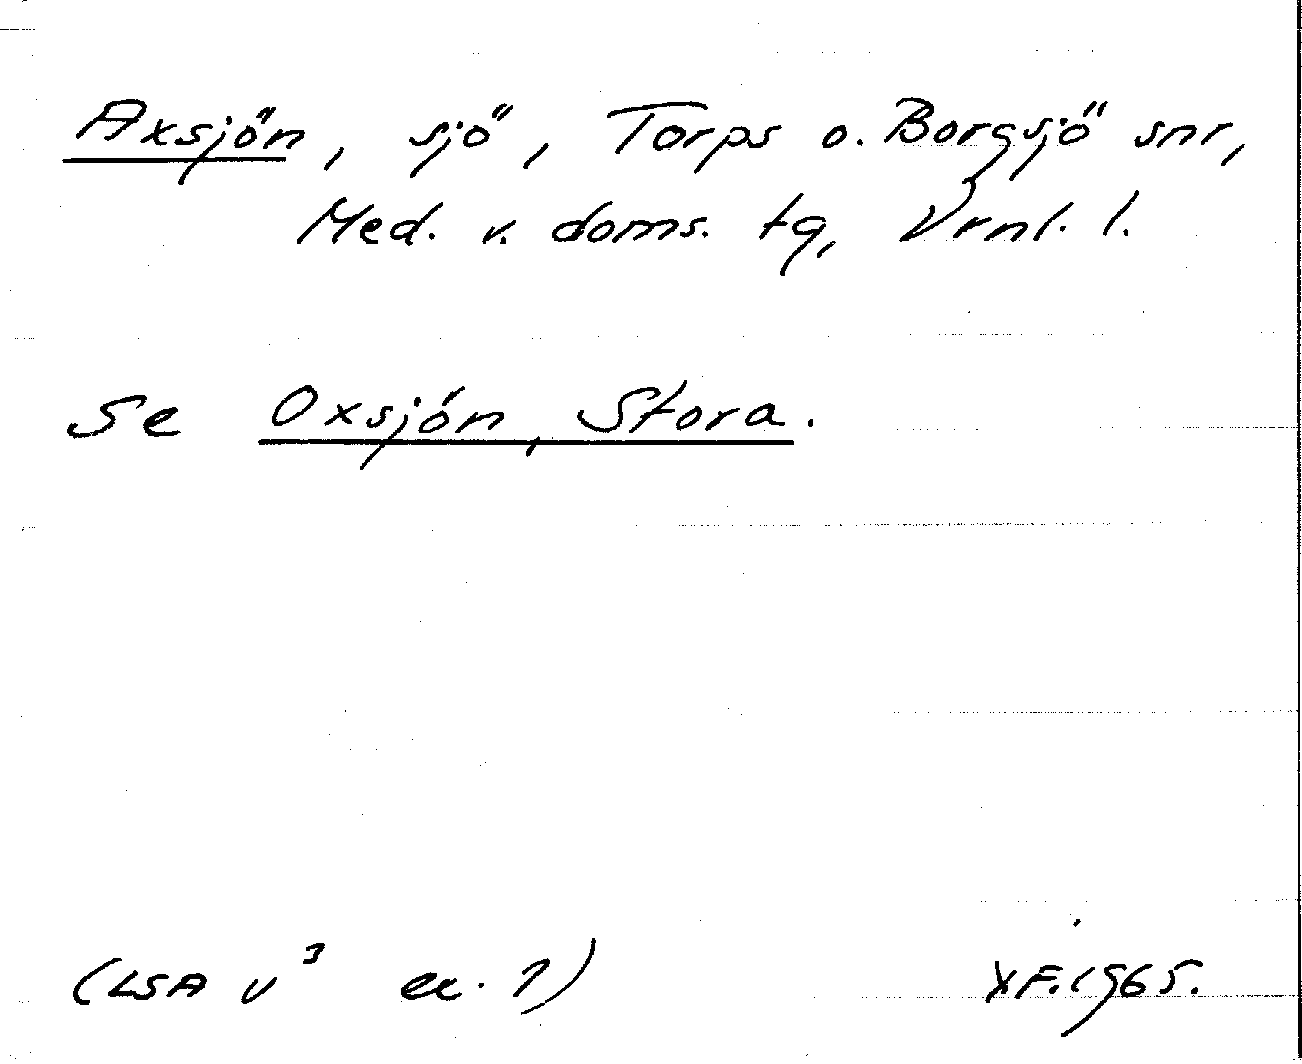 Axsjön, sjö, Torps o. Borgsjö snr,
Med. v. doms. tg, Vrnl. l.
Se Oxsjön, Stora.
(LSA V³ ex. 1)
1965.